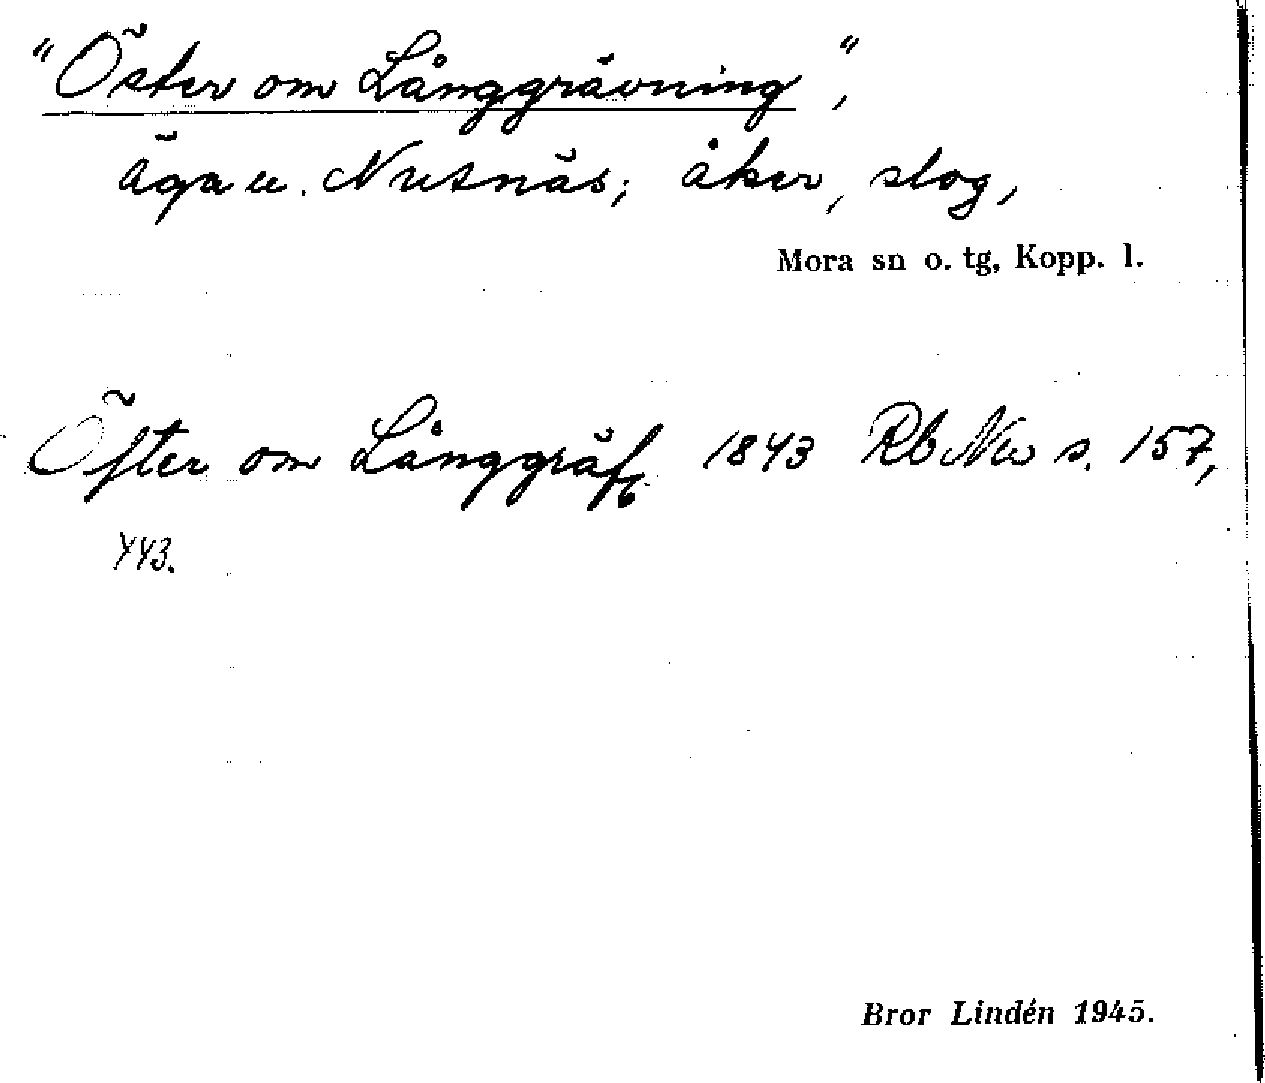 "Öster om Långgrävning",
äga u. Nusnäs; åker, slog,
Mora sn o. tg, Kopp. l.
Öster om Långgräfg 1843 Rb Nw s. 157,
443.
Bror Lindén 1945.